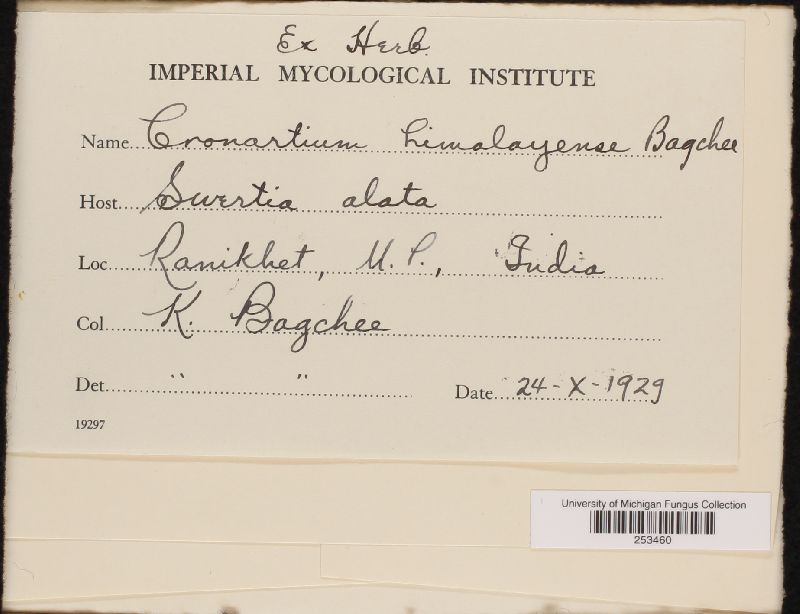 Ex Herb.
IMPERIAL MYCOLOGICAL INSTITUTE
Name Cronartium himalayense Bagchee
Host Swertia alata
Loc Ranikhet, U.P., India
Col K. Bagchee
Det " " Date 24-X-1929
19297
University of Michigan Fungus Collection
253460